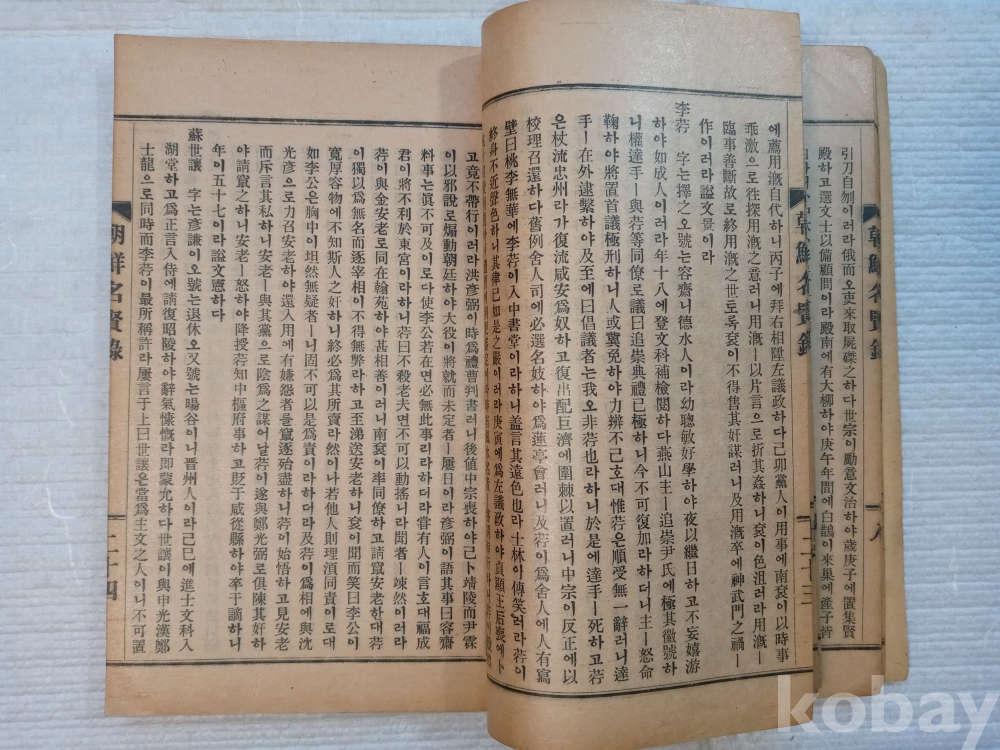 引刀自刎이러라俄而오吏來取屍磔之하다世宗이勵意文治하야歲庚子에置集賢
殿하고選文士以備顧問이라殿南에有大柳하야庚午年間에白鵲이來巢에產子皆
朝鮮名賢錄
八
朝鮮名賢錄
三十三
에薦用漑自代하니丙子에拜右相陞左議政하다己卯黨人이用事에南袞이以時事
乖激으로徃探用漑之意러니用漑ㅣ以片言으로折其姦하니袞이色沮러라用漑ㅣ
臨事善斷故로終用漑之世토록袞이不得售其奸謀러니及用漑卒에神武門之禍ㅣ
作이러라謚文景이라
李荇 字는擇之오號는容齋니德水人이라幼聰敏好學하야夜以繼日하고不妄嬉游
하야如成人이러라年十八에登文科補檢閱하다燕山主ㅣ追崇尹氏에極其徽號하
니權達手ㅣ與荇等同僚로議曰追崇典禮已極하니今不可復加라하더니主ㅣ怒命
鞠하야將置首議極刑하니人或冀免하야力辨不己호대惟荇은順受無一辭러니達
手ㅣ在外逮繫하야及至에曰倡議者는我오非荇也라하니於是에達手ㅣ死하고荇
은杖流忠州라가復流咸安爲奴하고復出配巨濟에圍棘以置러니中宗이反正에以
校理召還하다舊例舍人司에必選名妓하야爲蓮亭會러니及荇이爲舍人에人有寫
壁曰桃李無華에李荇이入中書堂이라하니盖言其遠色也라士林이傳笑러라荇이
終身不近聲色하니其律己如是之嚴이러라庚寅에爲左議政하야貞顯王后喪에卜
고竟不帶行이러라洪彦弼이時爲禮曹判書러니後値中宗喪하야己卜靖陵而尹霖
이以邪說로煽動朝廷하야大役이將就而未定者ㅣ屢日이라彦弼이語其事曰容齋
料事는眞不可及이로다使李公若在면必無此事리라하더라嘗有人이言호대福成
君이將不利於東宮이라하니荇曰不殺老夫면不可以動搖니라聞者ㅣ竦然이러라
荇이與金安老로同在翰苑하야甚相善이러니南袞이率同僚하고請竄安老한대荇
이獨以爲無名而逐宰相이不得無弊라하고至涕送安老하니袞이聞而笑曰李公이
寬厚容物에不知斯人之奸하니終必爲其所賣라然이나若他人則理須同責이로대
如李公은胸中이坦然無疑者ㅣ니固不可以是爲責이라하더라及荇이爲相에與沈
光彦으로力召安老하야還入用에有嫌怨者를竄逐殆盡하니荇이始悟하고見安老
而斥言其私하니安老ㅣ與其黨으로陰爲之謀어날荇이遂與鄭光弼로俱陳其奸하
야請竄之하니安老ㅣ怒하야降授荇知中樞府事하고貶于咸從縣하야卒于謫하니
年이五十七이라謚文憲하다
蘇世讓 字는彦謙이오號는退休오又號는暘谷이니晋州人이라己巳에進士文科入
湖堂하고爲正言入侍에請復昭陵하야辭氣慷慨라即蒙允하다世讓이與申光漢鄭
士龍으로同時而李荇이最所稱許라屢言于上曰世讓은當爲主文之人이니不可置
朝鮮名賢錄
三十四
kobay